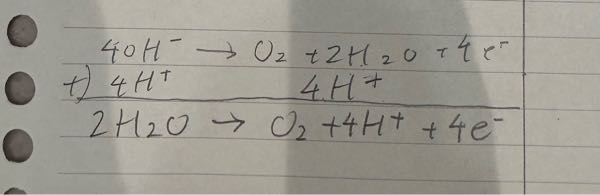 4OH⁻ → O₂ + 2H₂O + 4e⁻
+) 4H⁺ 4H⁺
2H₂O → O₂ + 4H⁺ + 4e⁻